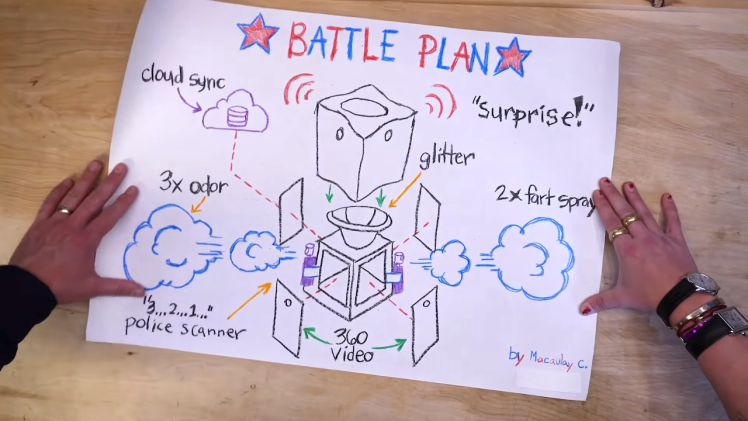 BATTLE PLAN
cloud sync
"Surprise!"
glitter
3x odor
2x fart spray
"3...2...1..."
police scanner
360
Video
by Macaulay C.